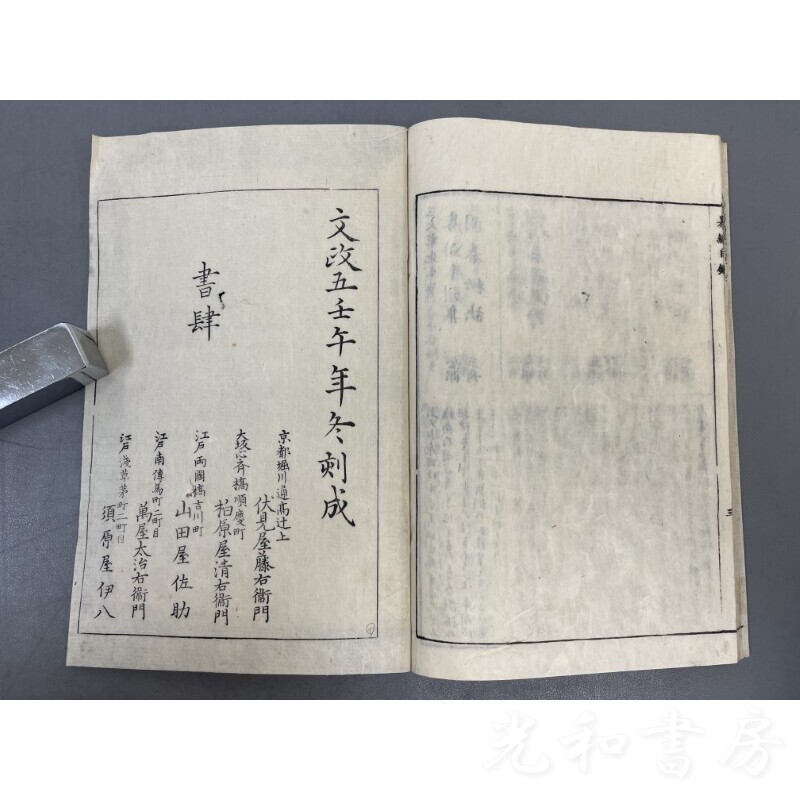 文政五壬午年冬刻成
書肆
京都堀川通高辻上
伏見屋藤右衞門
大坂心斉橋順慶町
柏原屋清右衞門
江戸両國橋吉川町
山田屋佐助
江戸南傳馬町二町目
萬屋太治右衞門
江戸淺草茅町二町目
須原屋伊八
三
光和書房